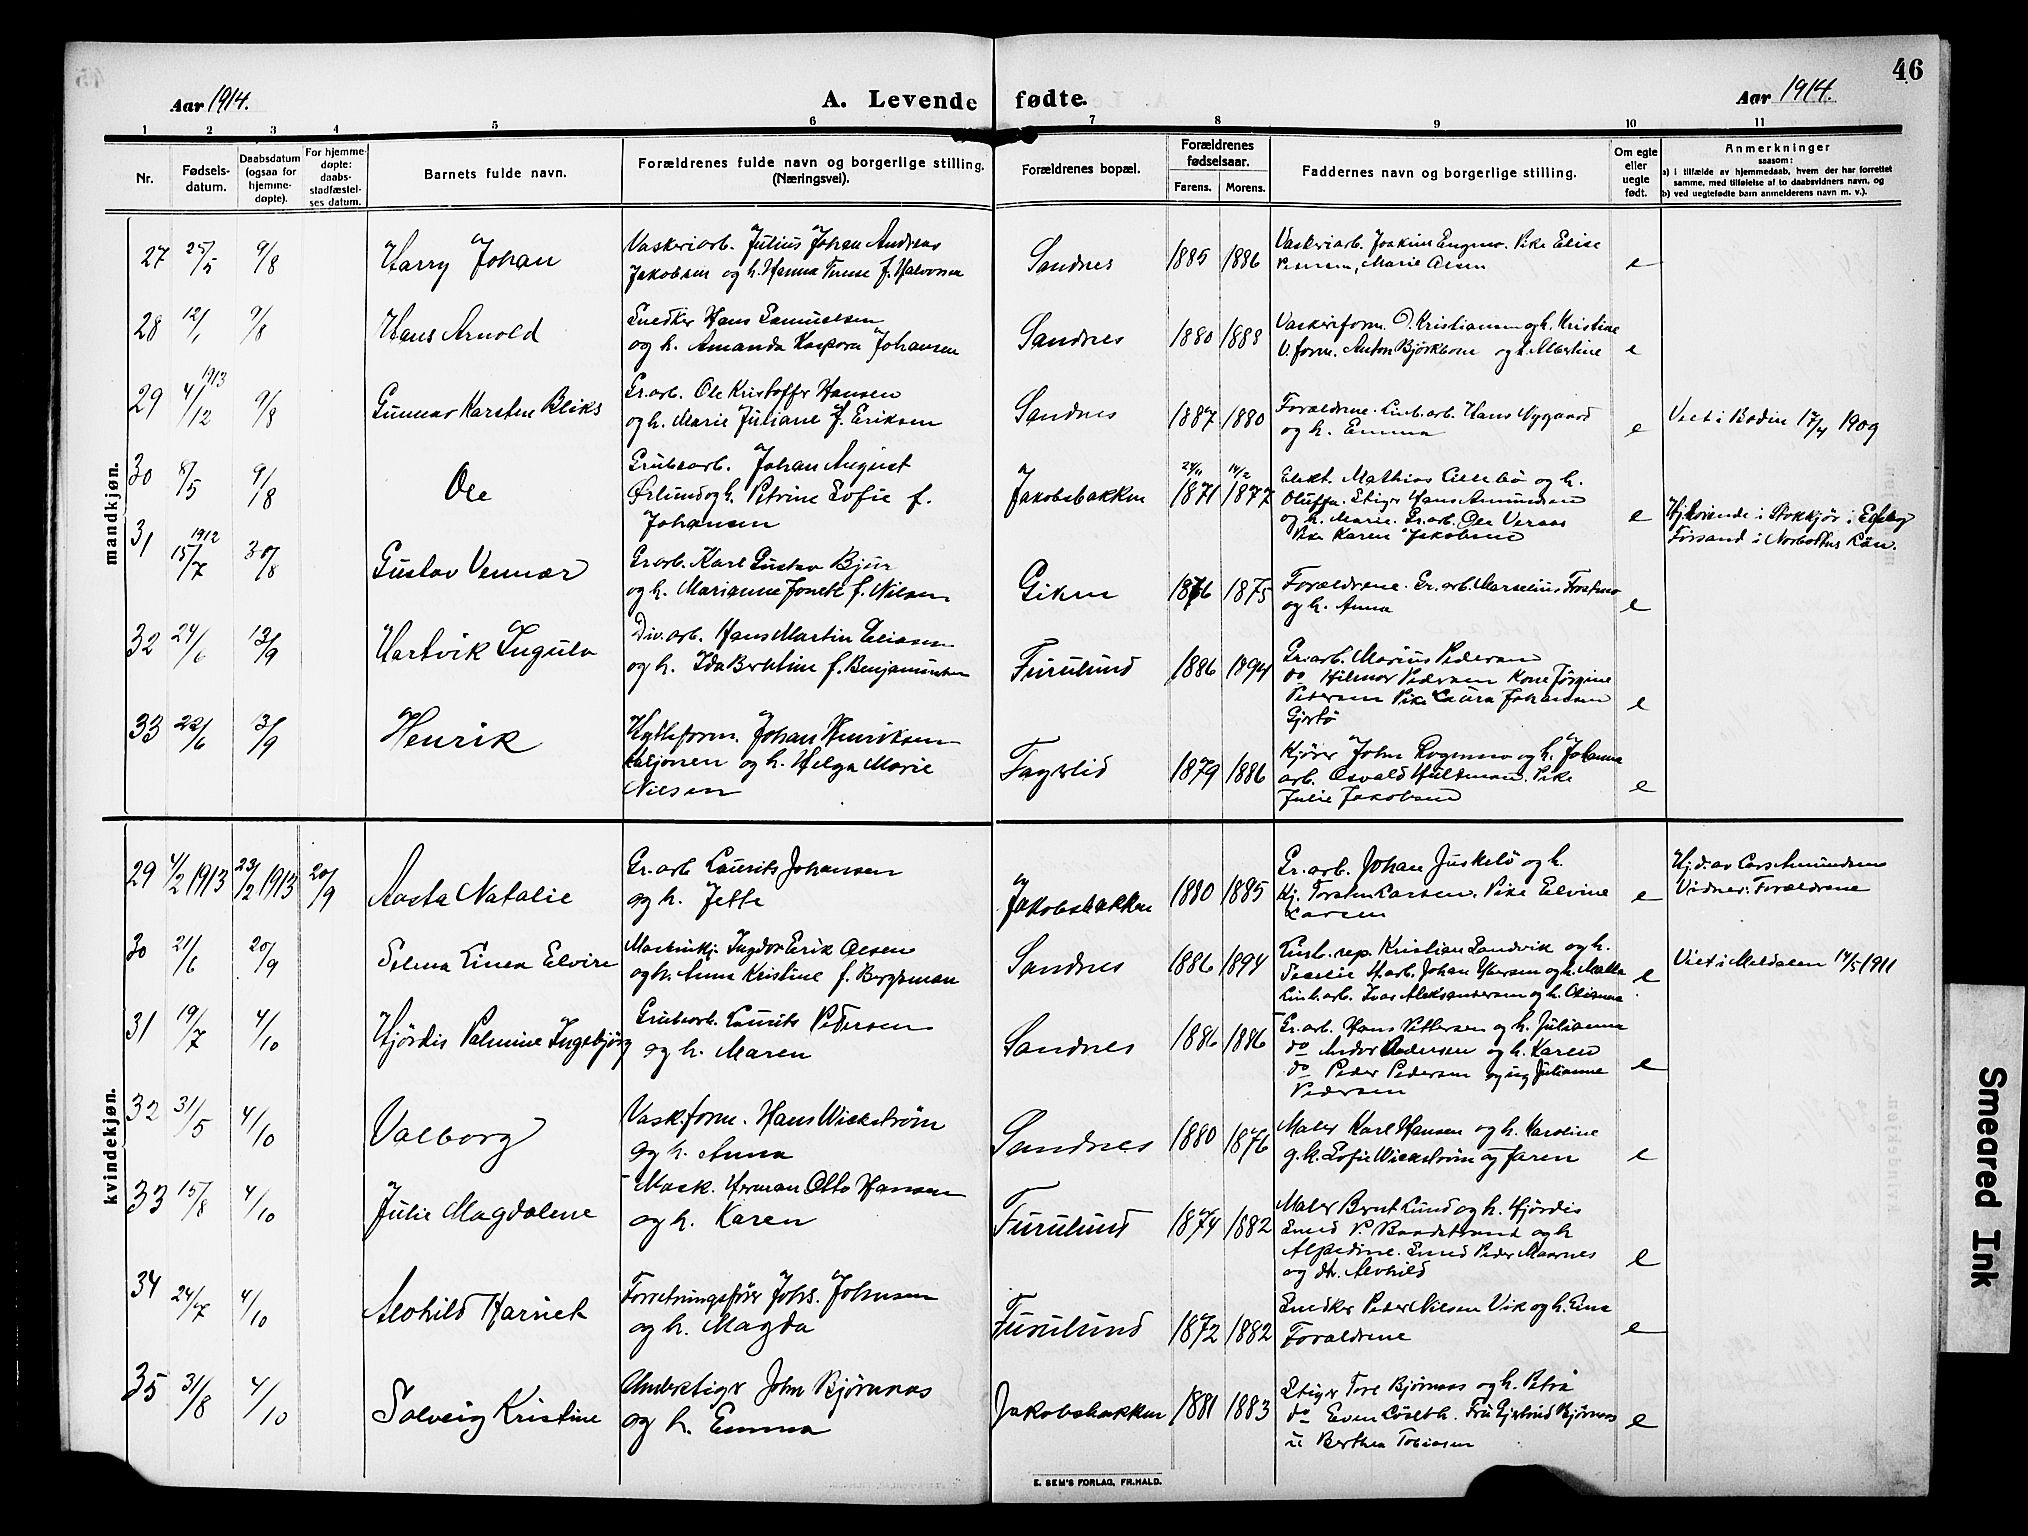 46
Aar 1914.
A. Levende fødte.
Aar 1914.
1 2 3 4 5 6 7 8 9 10 11
Nr.
Fødsels-datum.
Daabsdatum (ogsaa for hjemme-døpte).
For hjemme-døpte: daabs-stadfæstel-ses datum.
Barnets fulde navn.
Forældrenes fulde navn og borgerlige stilling. (Næringsvei).
Forældrenes bopæl.
Forældrenes fødselsaar.
Farens. Morens.
Faddernes navn og borgerlige stilling.
Om egte eller uegte født.
Anmerkninger
saasom:
a) i tilfælde av hjemmedaab, hvem der har forrettet samme, med tilføielse af to daabsvidners navn, og
b) ved uegtefødte barn anmelderens navn m. v.).
mandkjøn.
27 25/5 9/8 Harry Johan
Vaskeriarb. Julius Johan Andreas
Jakobsen og h. Hanna f. Halvorsen
Sandnes 1885 1886
Vaskeriarb. Joakim Engmo. Pike Elise
Marie Olsen e
28 12/1 9/8 Hans Arnold
Snedker Hans Samuelsen
og h. Amanda Kaspara Johansen
Sandnes 1880 1888
Vaskeriform. O. Kristiansen og h. Kristine
V. form. Anton Bjørkbom og h. Albertine e
29 4/12 1913 9/8 Gunnar Karsten Bliks
Gr. arb. Ole Kristoffer Hansen
og h. Marie Juliane f. Eriksen
Sandnes 1887 1880
Forældrene. Linb. arb. Hans Nygaard
og h. Emma e
Viet i Bodin 17/4 1909
30 8/5 9/8 Ole
Grubearb. Johan August
Ørlund og h. Petrine Sofie f.
Johansen
Jakobsbakken 24/11 1871 14/2 1877
Elekt. Mathias og h.
Oluffa. Stiger Hans Amundsen
og h. Marie. Gr. arb. Ole Veraas
Pike Karen Jakobsen e
Hjhørende i Stokkjør i
Forsand i Norbottens Län.
31 15/7 1912 30/8 Gustav Vennær
Gr. arb. Karl Gustav Bjur
og h. Marianne Jonette f. Nilsen
Giken 1876 1875
Forældrene. Gr. arb. Marselius
og h. Anna e
32 24/6 13/9 Hartvik Ingulv
Div. arb. Hans Martin Eliasen
og h. Ida Berntine f. Benjaminsen
Furulund 1886 1894
Gr. arb. Marius Pedersen
do Hilmar Pedersen Kone Jørgine
Petersen Pike Laura Johansen
Gjertø e
33 22/6 13/9 Henrik
Hytteform. Johan Henriksen
og h. Helga Marie
Nilsen
Fagerlid 1879 1886
Kjører John Rognmo og h. Johanna
arb. Osvald Hultman. Pike
Julie Jakobsen e
kvindekjøn.
29 4/2 1913 23/2 1913 20/9 Aasta Natalie
Gr. arb Laurits Johansen
og h. Jette
Jakobsbakken 1880 1885
Gr. arb. Johan Juskelö og h.
Kj. Torsten Larsen. Pike Elvine
Larsen e
Hj. d. av Lars Amundsen
Vidner: Forældrene
30 21/6 20/9 Selma Linea Elvire
Maskinkj. Ingvar Erik Olsen
og h. Anna Kristine f. Bergsman
Sandnes 1886 1894
Linb. rep. Kristian Sandvik og h.
Johan og h. Malla
Linb. arb. Ivar Aleksandersen og h. e
Viet i Meldalen 14/5 1911
31 19/7 4/10 Hjørdis Palmine Ingebjørg
Grubearb. Laurits Pedersen
og h. Maren
Sandnes 1886 1886
Gr. arb. Hans Pettersen og h. Julianna
do Andor Pedersen og h. Karen
do Peder Pedersen og ug Julianne
Pedersen e
32 31/5 4/10 Valborg
Vask. form. Hans Wickstrøm
og h. Anna
Sandnes 1880 1876
Maler Karl Hansen og h. Karoline
g. k. Sofie Wickstrøm og faren e
33 15/8 4/10 Julie Magdalene
Mask. Herman Otto Hansen
og h. Karen
Furulund 1874 1882
Maler Bernt Lund og h. Hjørdis
Smed P. Baadstrand og h
Alpedine. Smed Peder Maarnes
og dtr. Alvhild e
34 24/7 4/10 Alvhild Harriet
Forretningsfører Johs. Johnsen
og h. Magda
Furulund 1872 1882
Snedker Peter Nilsen Vik og h. Lina
Forældrene e
35 31/8 4/10 Solveig Kristine
Understiger John Bjørnnas
og h. Emma
Jakobsbakken 1881 1883
Stiger Tore Bjørnaas og h. Petra
do Even Løseth. Fru Gjertrud Bjørnaas
u Berthea Tobiasen e
E. SEM'S FORLAG, FR.HALD.
Smeared Ink